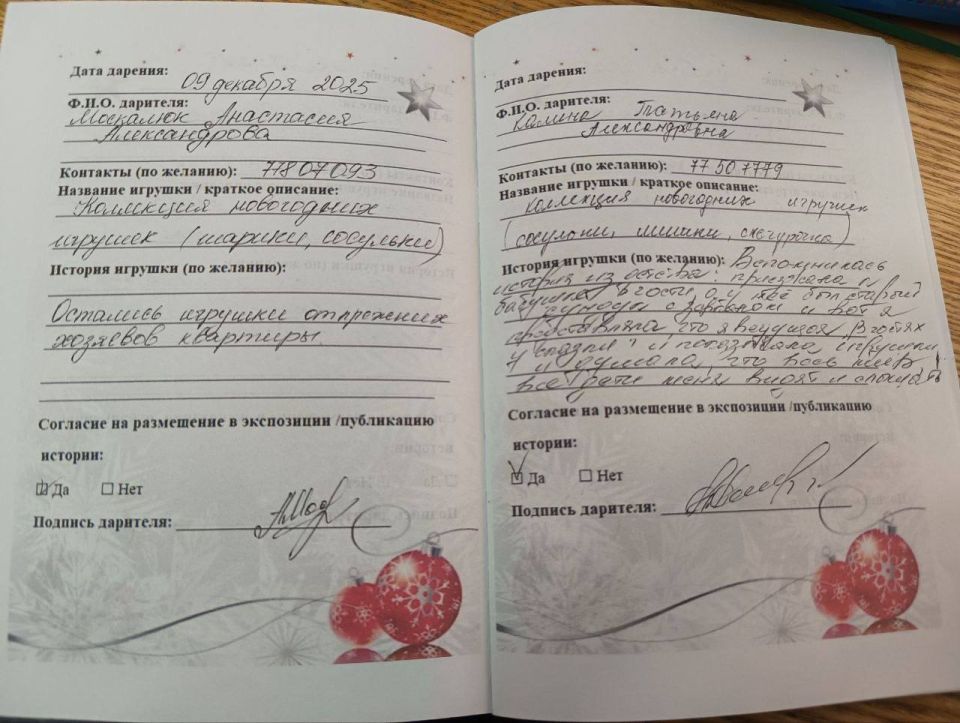 Дата дарения:
09 декабря 2025
Ф.И.О. дарителя:
Москалюк Анастасия
Александрова
Контакты (по желанию): 77807093
Название игрушки / краткое описание:
Коллекция новогодних
игрушек (шарики, сосульки)
История игрушки (по желанию):
Остались игрушки от прежних
хозяевов квартиры.
Согласие на размещение в экспозиции /публикацию
истории:
☑ Да ☐ Нет
Подпись дарителя:
Дата дарения:
Ф.И.О. дарителя:
Калина Татьяна
Александровна
Контакты (по желанию): 77507779
Название игрушки / краткое описание:
коллекция новогодних игрушек
(сосульки, мишки, снегурочка)
История игрушки (по желанию): Вспомнилась
история из детства: приезжала к
бабушке в гости, а у неё был старый
и вот я
представляла что я ведущая "В гостях
у сказки" и показывала игрушки
и думала, что весь мир
все дети меня видят и
Согласие на размещение в экспозиции /публикацию
истории:
☑ Да ☐ Нет
Подпись дарителя: